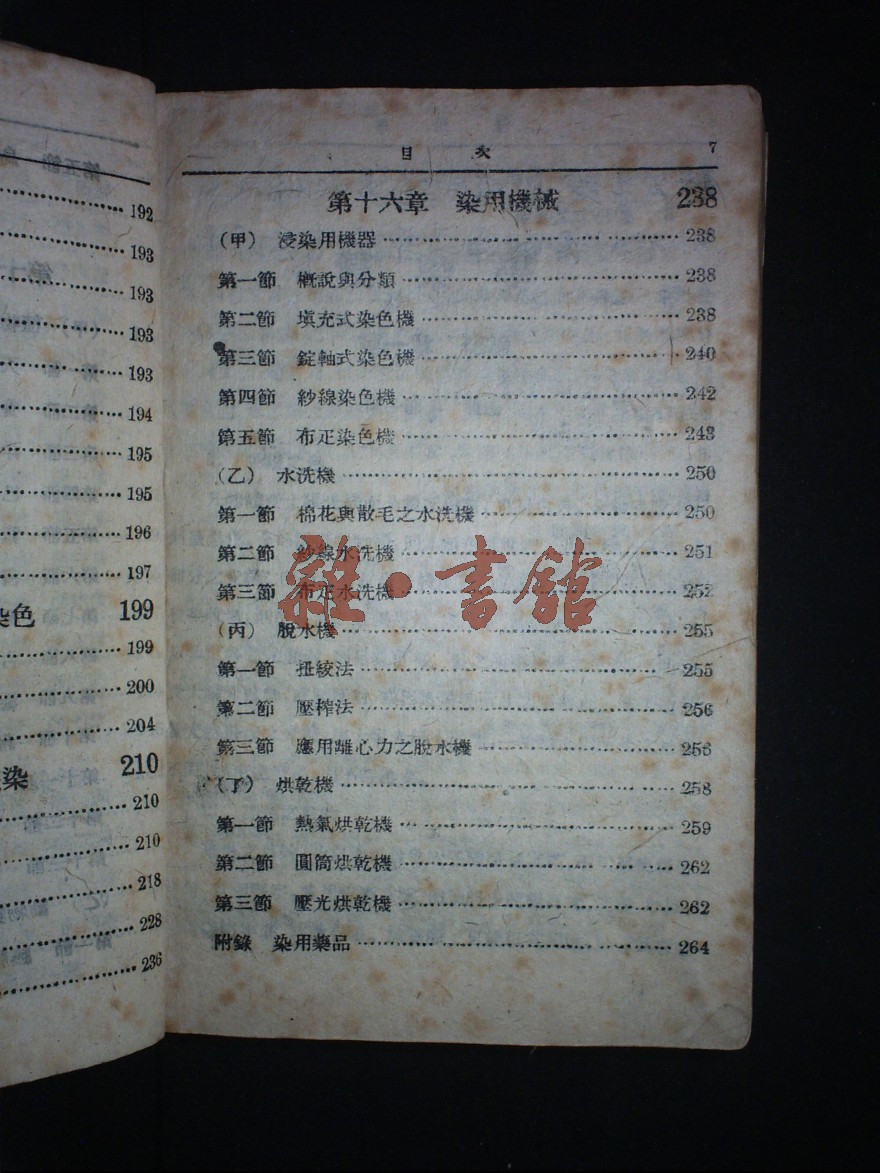 192
193
193
193
193
194
195
195
196
197
染色 199
199
200
204
染 210
210
210
218
228
236
目 次 7
第十六章 染用機械 238
(甲) 浸染用機器 238
第一節 概說與分類 238
第二節 填充式染色機 238
第三節 錠軸式染色機 240
第四節 紗線染色機 242
第五節 布疋染色機 243
(乙) 水洗機 250
第一節 棉花與散毛之水洗機 250
第二節 紗線水洗機 251
第三節 布疋水洗機 252
(丙) 脫水機 255
第一節 扭絞法 255
第二節 壓榨法 256
第三節 應用離心力之脫水機 256
(丁) 烘乾機 258
第一節 熱氣烘乾機 259
第二節 圓筒烘乾機 262
第三節 壓光烘乾機 262
附錄 染用藥品 264
雜·書館